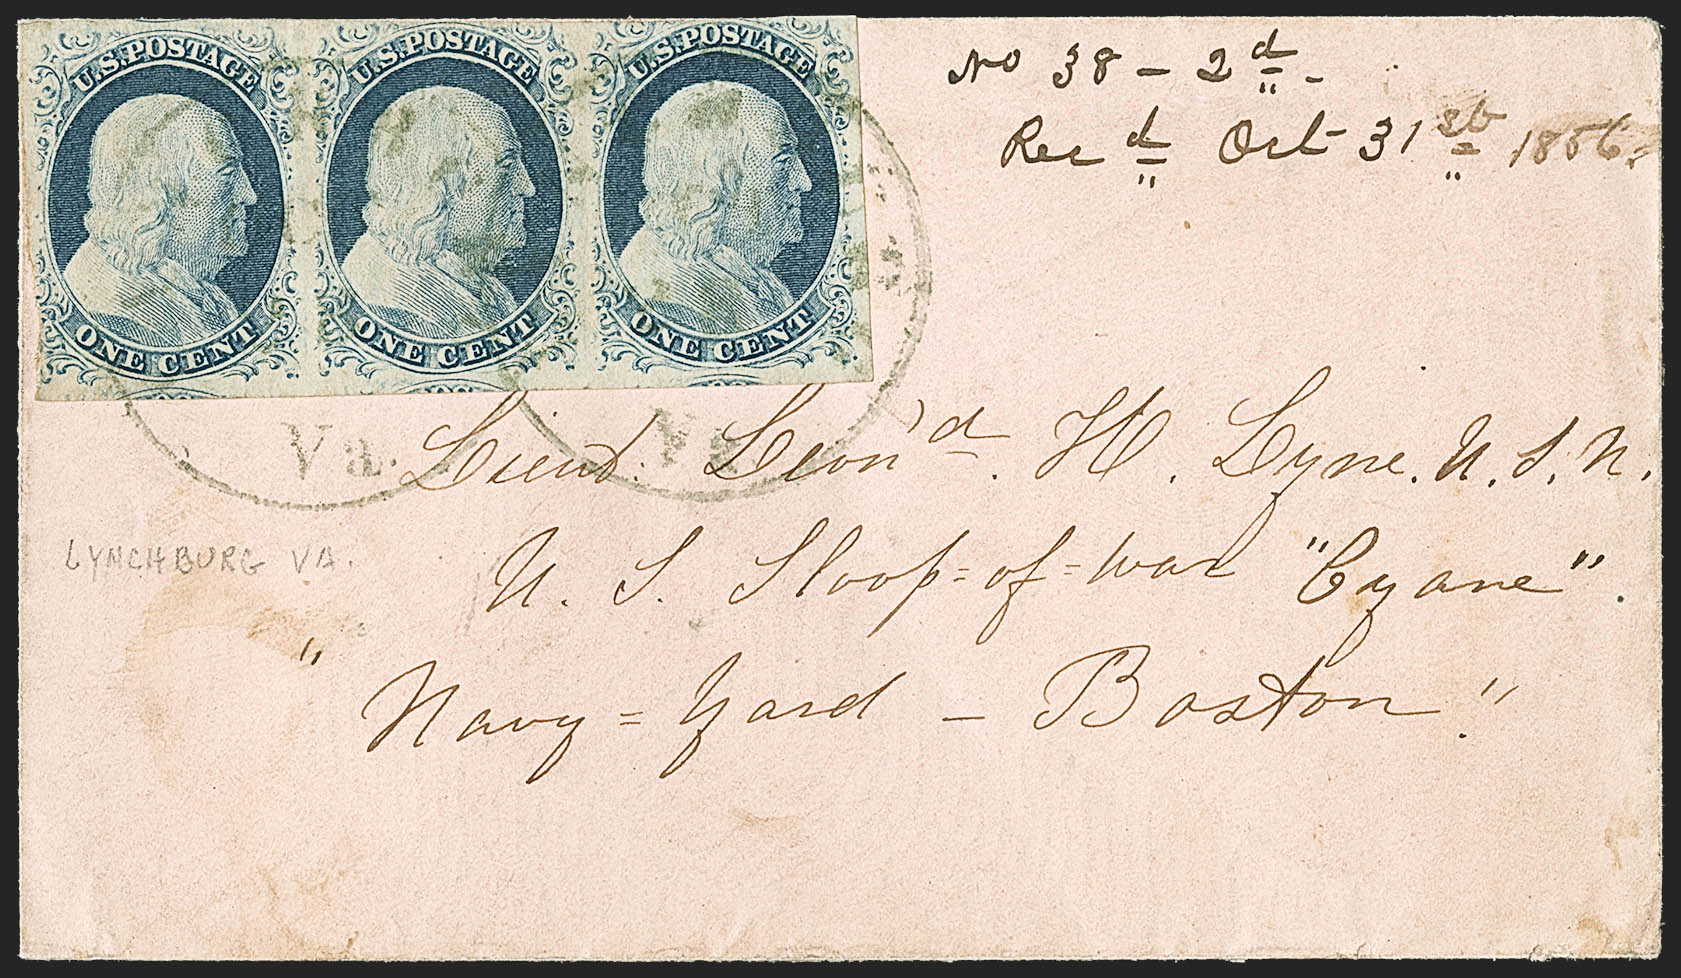 U.S. POSTAGE U.S. POSTAGE U.S. POSTAGE
ONE CENT ONE CENT ONE CENT
No 38 - 2d -
Recd Oct 31st 1856.
Va. Va
Lieut. Leon'd. H. Lyne. U. S. N.
LYNCHBURG VA.
U. S. Sloop=of=war "Cyane".
"Navy=Yard - Boston."